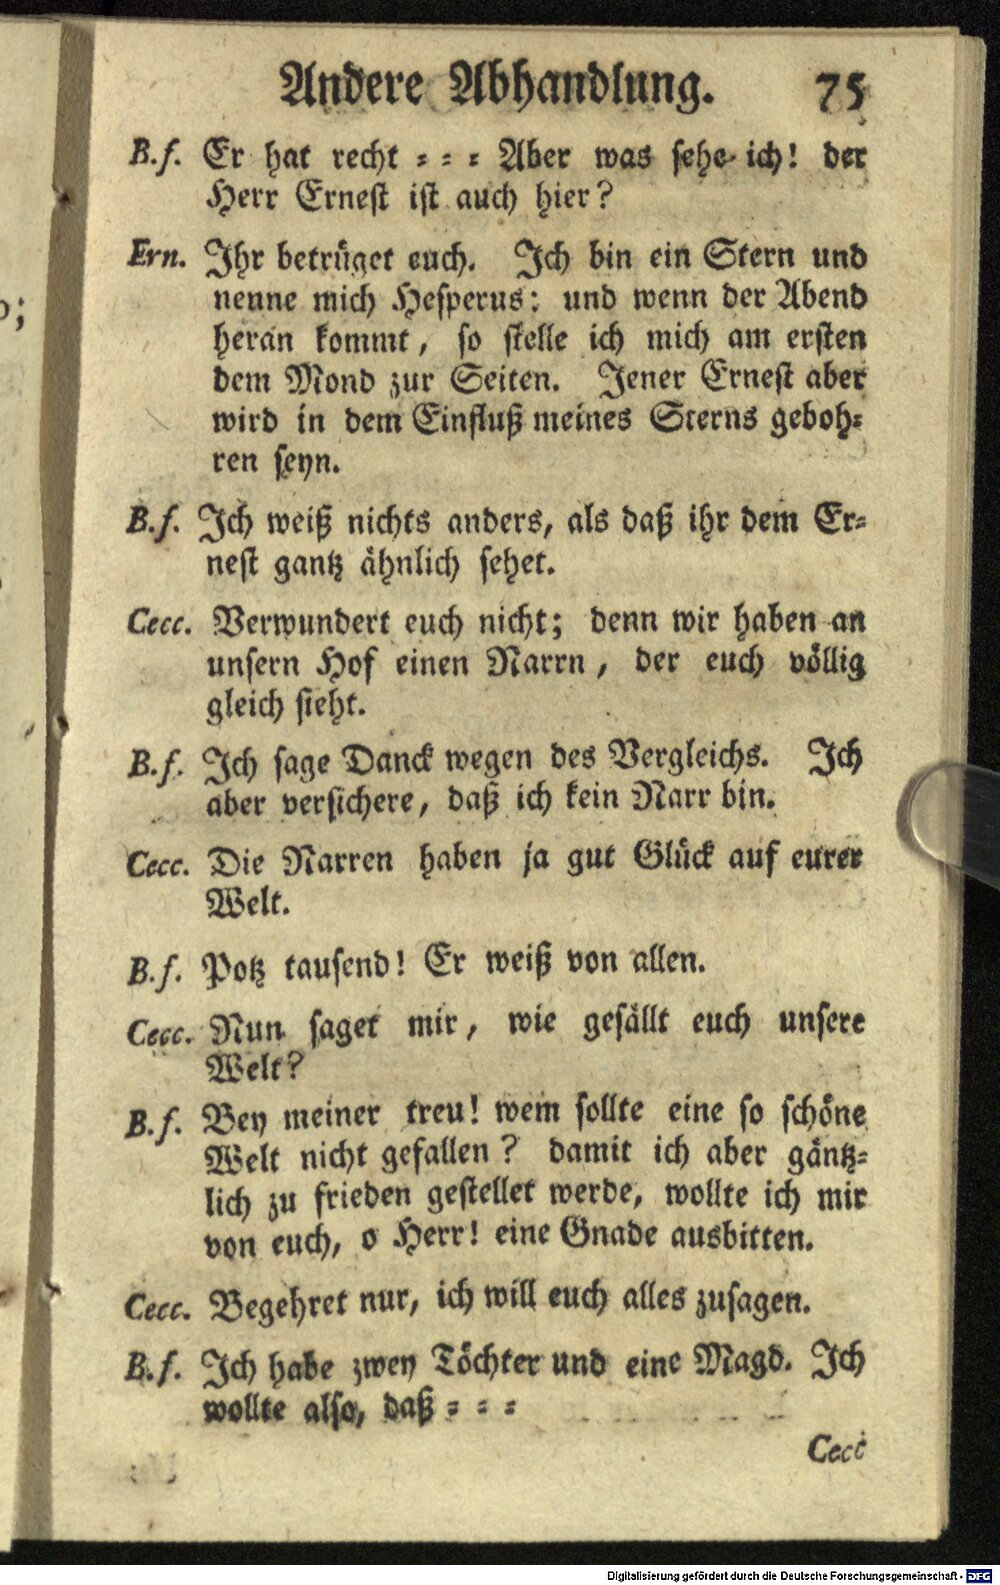 Andere Abhandlung. 75
B.f. Er hat recht = = = Aber was sehe ich! der
Herr Ernest ist auch hier?
Ern. Ihr betrüget euch. Ich bin ein Stern und
nenne mich Hesperus: und wenn der Abend
heran kommt, so stelle ich mich am ersten
dem Mond zur Seiten. Jener Ernest aber
wird in dem Einfluß meines Sterns geboh=
ren seyn.
B.f. Ich weiß nichts anders, als daß ihr dem Er=
nest gantz ähnlich sehet.
Cecc. Verwundert euch nicht; denn wir haben an
unsern Hof einen Narrn, der euch völlig
gleich sieht.
B.f. Ich sage Danck wegen des Vergleichs. Ich
aber versichere, daß ich kein Narr bin.
Cecc. Die Narren haben ja gut Glück auf eurer
Welt.
B.f. Potz tausend! Er weiß von allen.
Cecc. Nun saget mir, wie gefällt euch unsere
Welt?
B.f. Bey meiner treu! wem sollte eine so schöne
Welt nicht gefallen? damit ich aber gäntz=
lich zu frieden gestellet werde, wollte ich mir
von euch, o Herr! eine Gnade ausbitten.
Cecc. Begehret nur, ich will euch alles zusagen.
B.f. Ich habe zwey Töchter und eine Magd. Ich
wollte also, daß = = =
Cecc
Digitalisierung gefördert durch die Deutsche Forschungsgemeinschaft - DFG